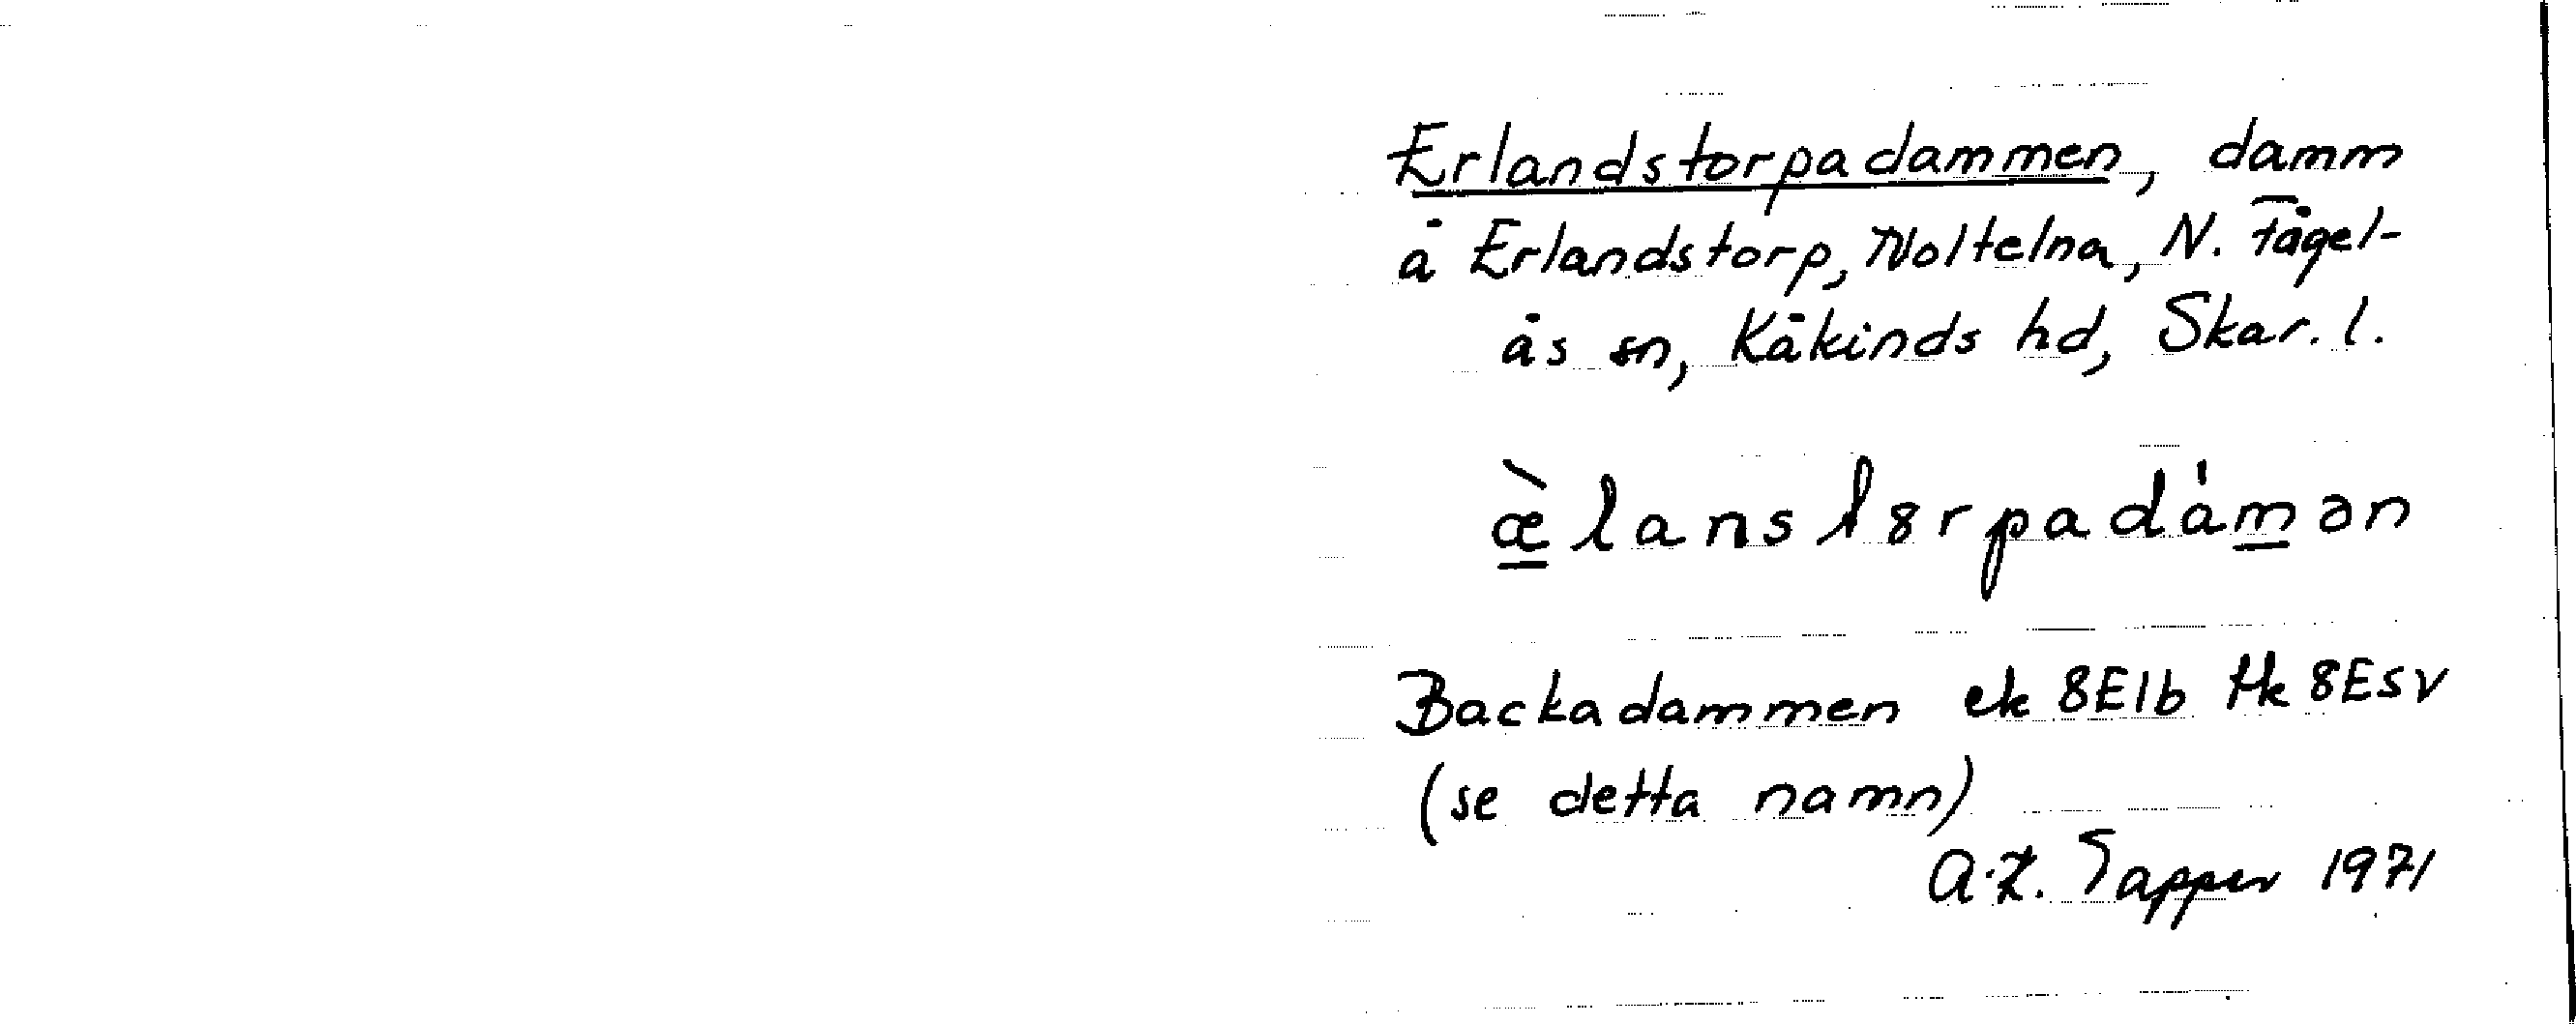 Erlandstorpadammen, damm
å Erlandstorp, Noltelna, N. Fågel-
ås sn, Kåkinds hd, Skar. l.
æ̀lanst8rpadámən
Backadammen ek 8E1b tk 8ESV
(se detta namn)
A.Z. Tapper 1971